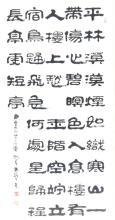 平林漠漠煙如織寒山一
帶傷心碧暝色入高樓有
人樓上愁玉階空佇立
宿鳥歸飛急何處是歸程
長亭更短亭